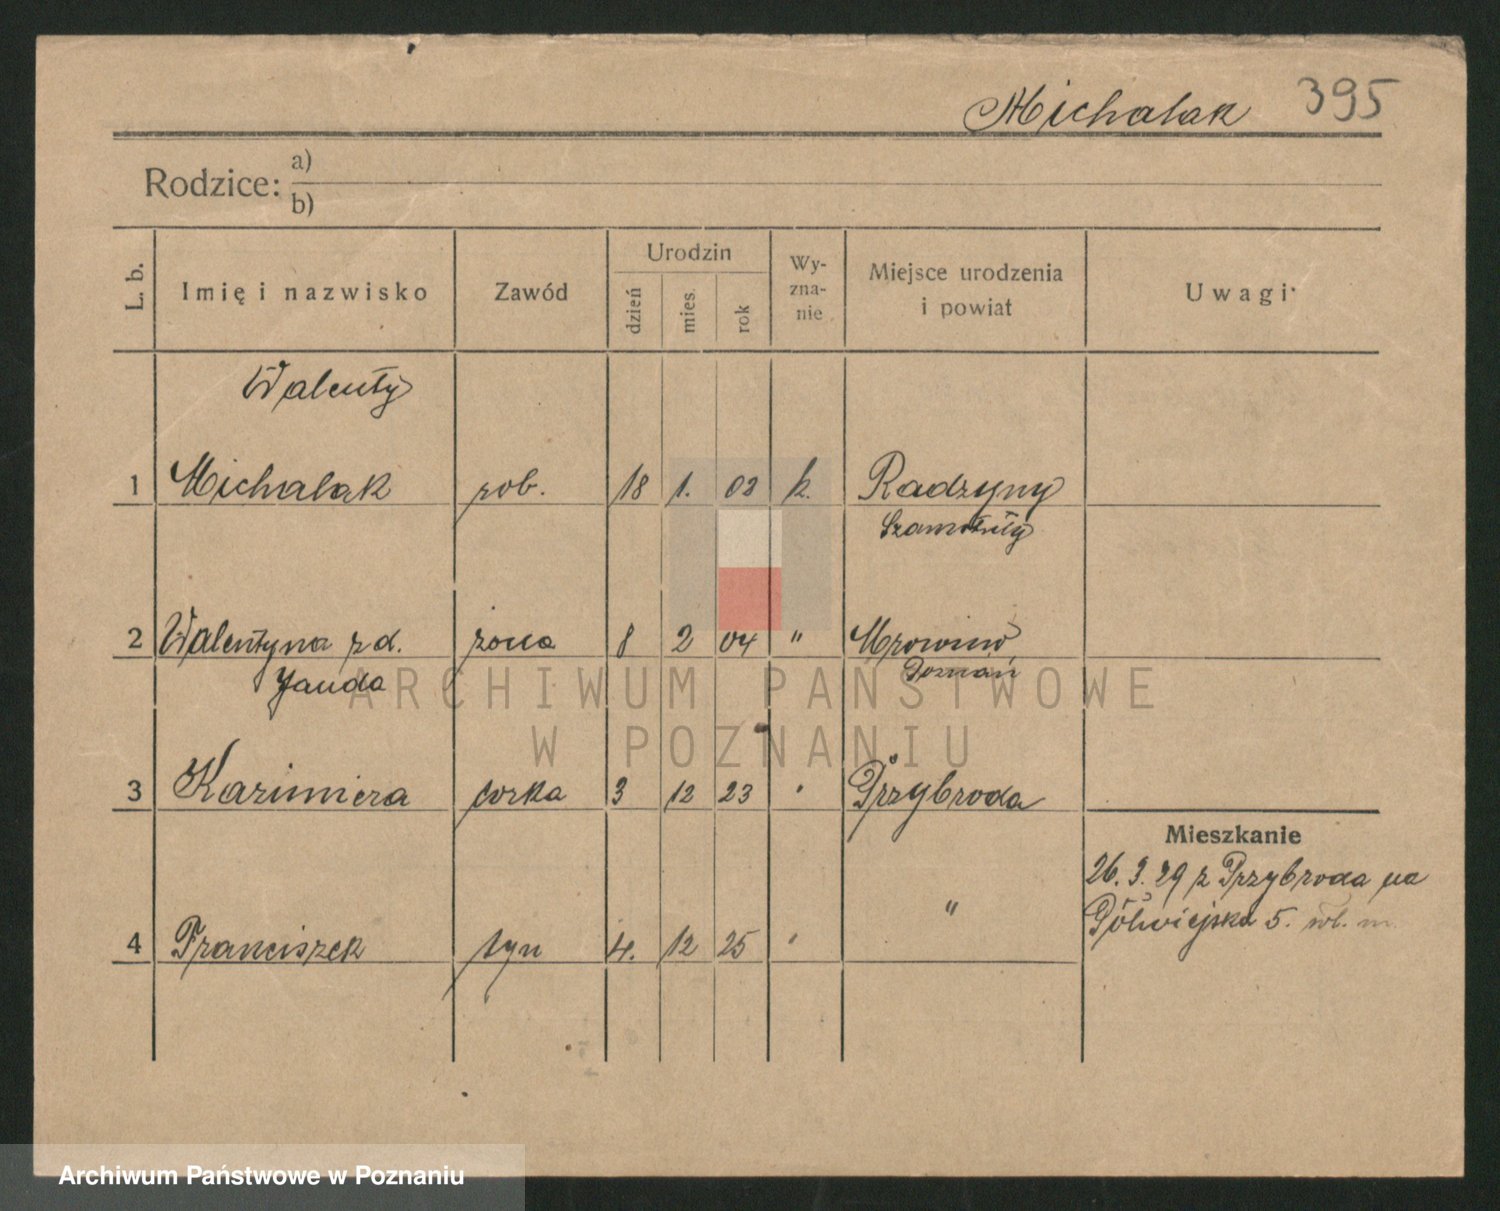 Michalak 395
Rodzice: a)
b)
L. b. Imię i nazwisko Zawód Urodzin dzień mies. rok Wy-zna-nie Miejsce urodzenia i powiat Uwagi
Walenty
1 Michalak rob. 18 1. 03 k. Radzyny
Szamotuły
2 Walentyna z d. żona 8 2 04 " Mrowino
Janda Poznań
3 Kazimiera córka 3 12 23 " Przybroda
Mieszkanie
26. 3. 29 z Przybroda na
4 Franciszek syn 4. 12 25 " " Półwiejska 5.
ARCHIWUM PAŃSTWOWE
W POZNANIU
Archiwum Państwowe w Poznaniu